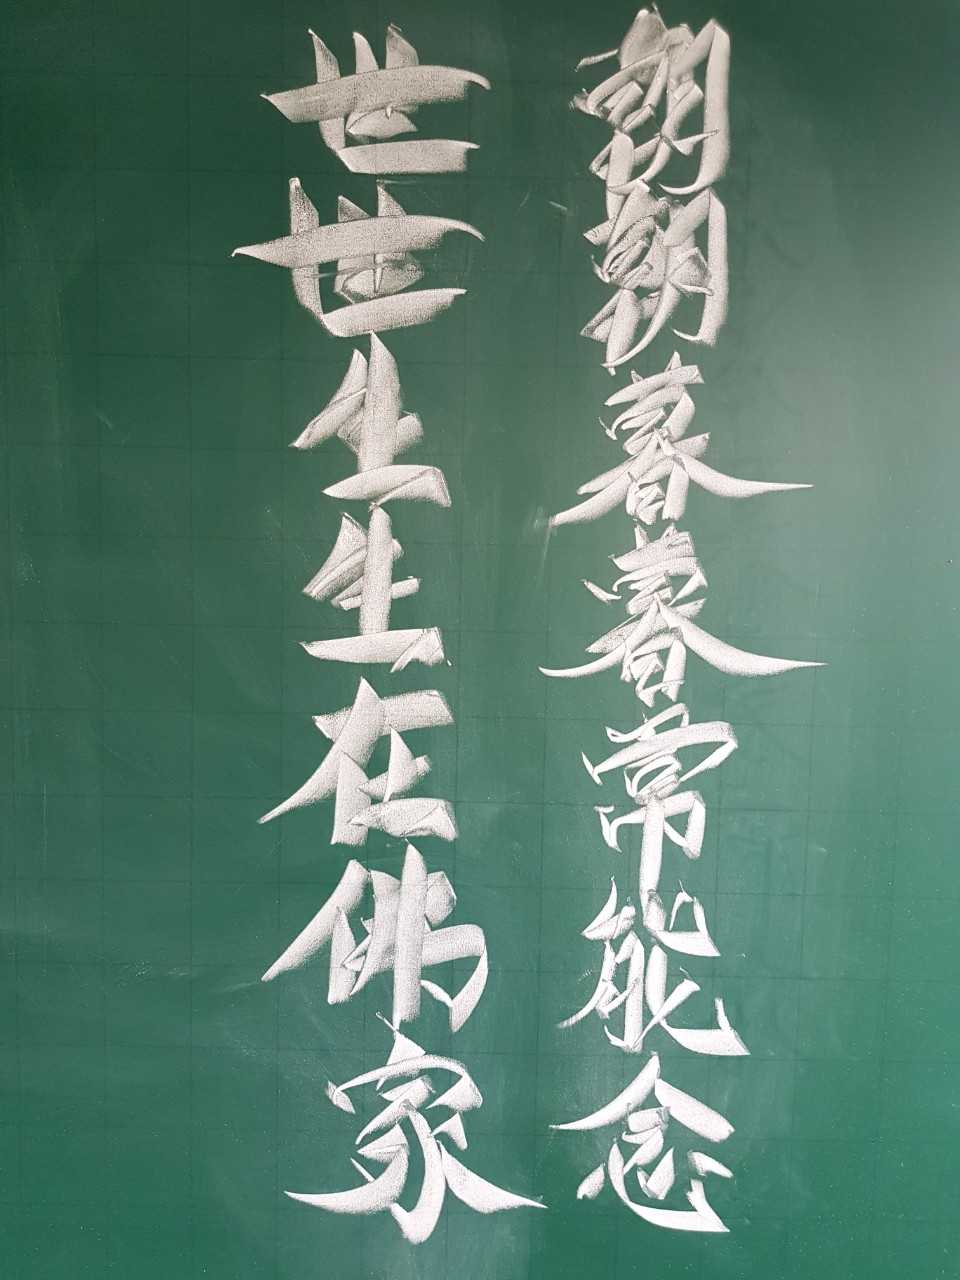 朝朝暮暮常能念
世世生生在佛家